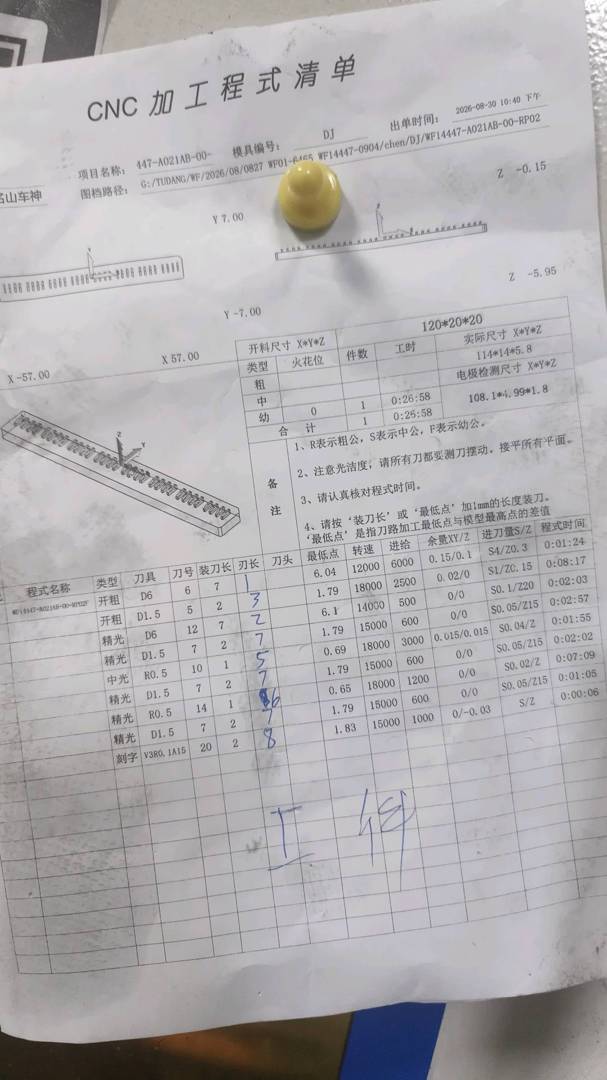 CNC 加工程式清单
出单时间: 2026-08-30 10:40 下午
项目名称: 447-A021AB-00- 模具编号: DJ
名山车神
图档路径: G:/TUDANG/WF/2026/08/0827 WF14447-0904/chen/DJ/WF14447-A021AB-00-RP02
Z -0.15
Y 7.00
Z -5.95
Y -7.00
X -57.00 X 57.00
开料尺寸 X*Y*Z 120*20*20
类型 火花位 件数 工时 实际尺寸 X*Y*Z
粗 114*14*5.8
中 电极检测尺寸 X*Y*Z
幼 0 1 0:26:58 108.1*4.99*1.8
合 计 1 0:26:58
备注
1、R表示粗公，S表示中公，F表示幼公。
2、注意光洁度，请所有刀都要测刀摆动。接平所有平面。
3、请认真核对程式时间。
4、请按‘装刀长’或‘最低点’加1mm的长度装刀。
‘最低点’是指刀路加工最低点与模型最高点的差值
程式名称 类型 刀具 刀号 装刀长 刃长 刀头 最低点 转速 进给 余量XY/Z 进刀量S/Z 程式时间
开粗 D6 6 7 1 6.04 12000 6000 0.15/0.1 S4/Z0.3 0:01:24
开粗 D1.5 5 2 3 1.79 18000 2500 0.02/0 S1/Z0.15 0:08:17
精光 D6 12 7 2 6.1 14000 500 0/0 S0.1/Z20 0:02:03
精光 D1.5 7 2 7 1.79 15000 600 0/0 S0.05/Z15 0:02:57
中光 R0.5 10 1 5 0.69 18000 3000 0.015/0.015 S0.04/Z 0:01:55
精光 D1.5 7 2 7 1.79 15000 600 0/0 S0.05/Z15 0:02:02
精光 R0.5 14 1 6 0.65 18000 1200 0/0 S0.02/Z 0:07:09
精光 D1.5 7 2 7 1.79 15000 600 0/0 S0.05/Z15 0:01:05
刻字 V3R0.1A15 20 2 8 1.83 15000 1000 0/-0.03 S/Z 0:00:06
工件